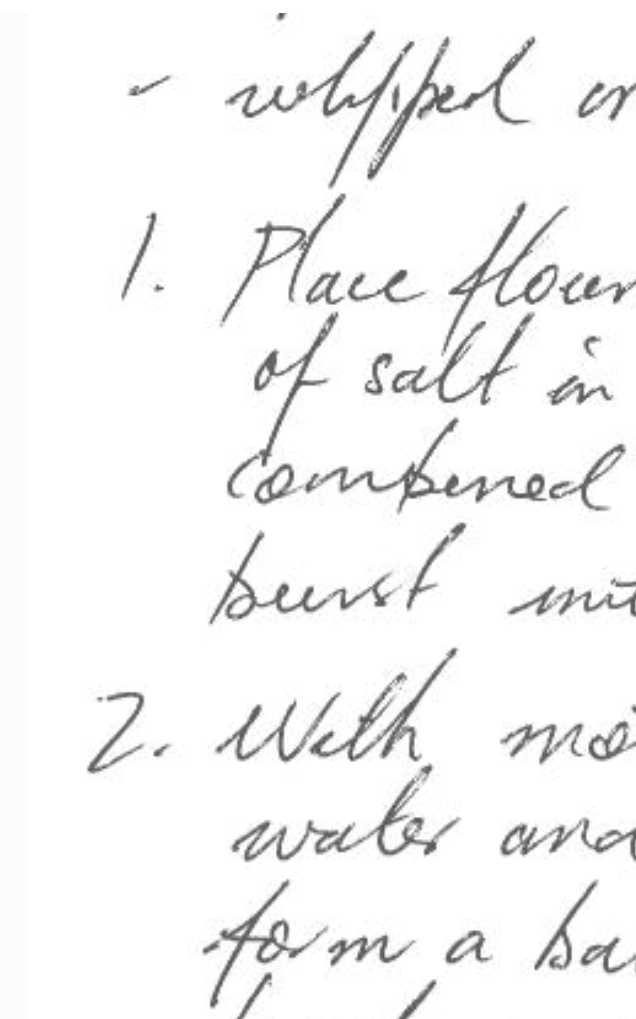 - whipped cr
1. Place flour
of salt in
combined
burst int
2. With mo
water and
form a ba